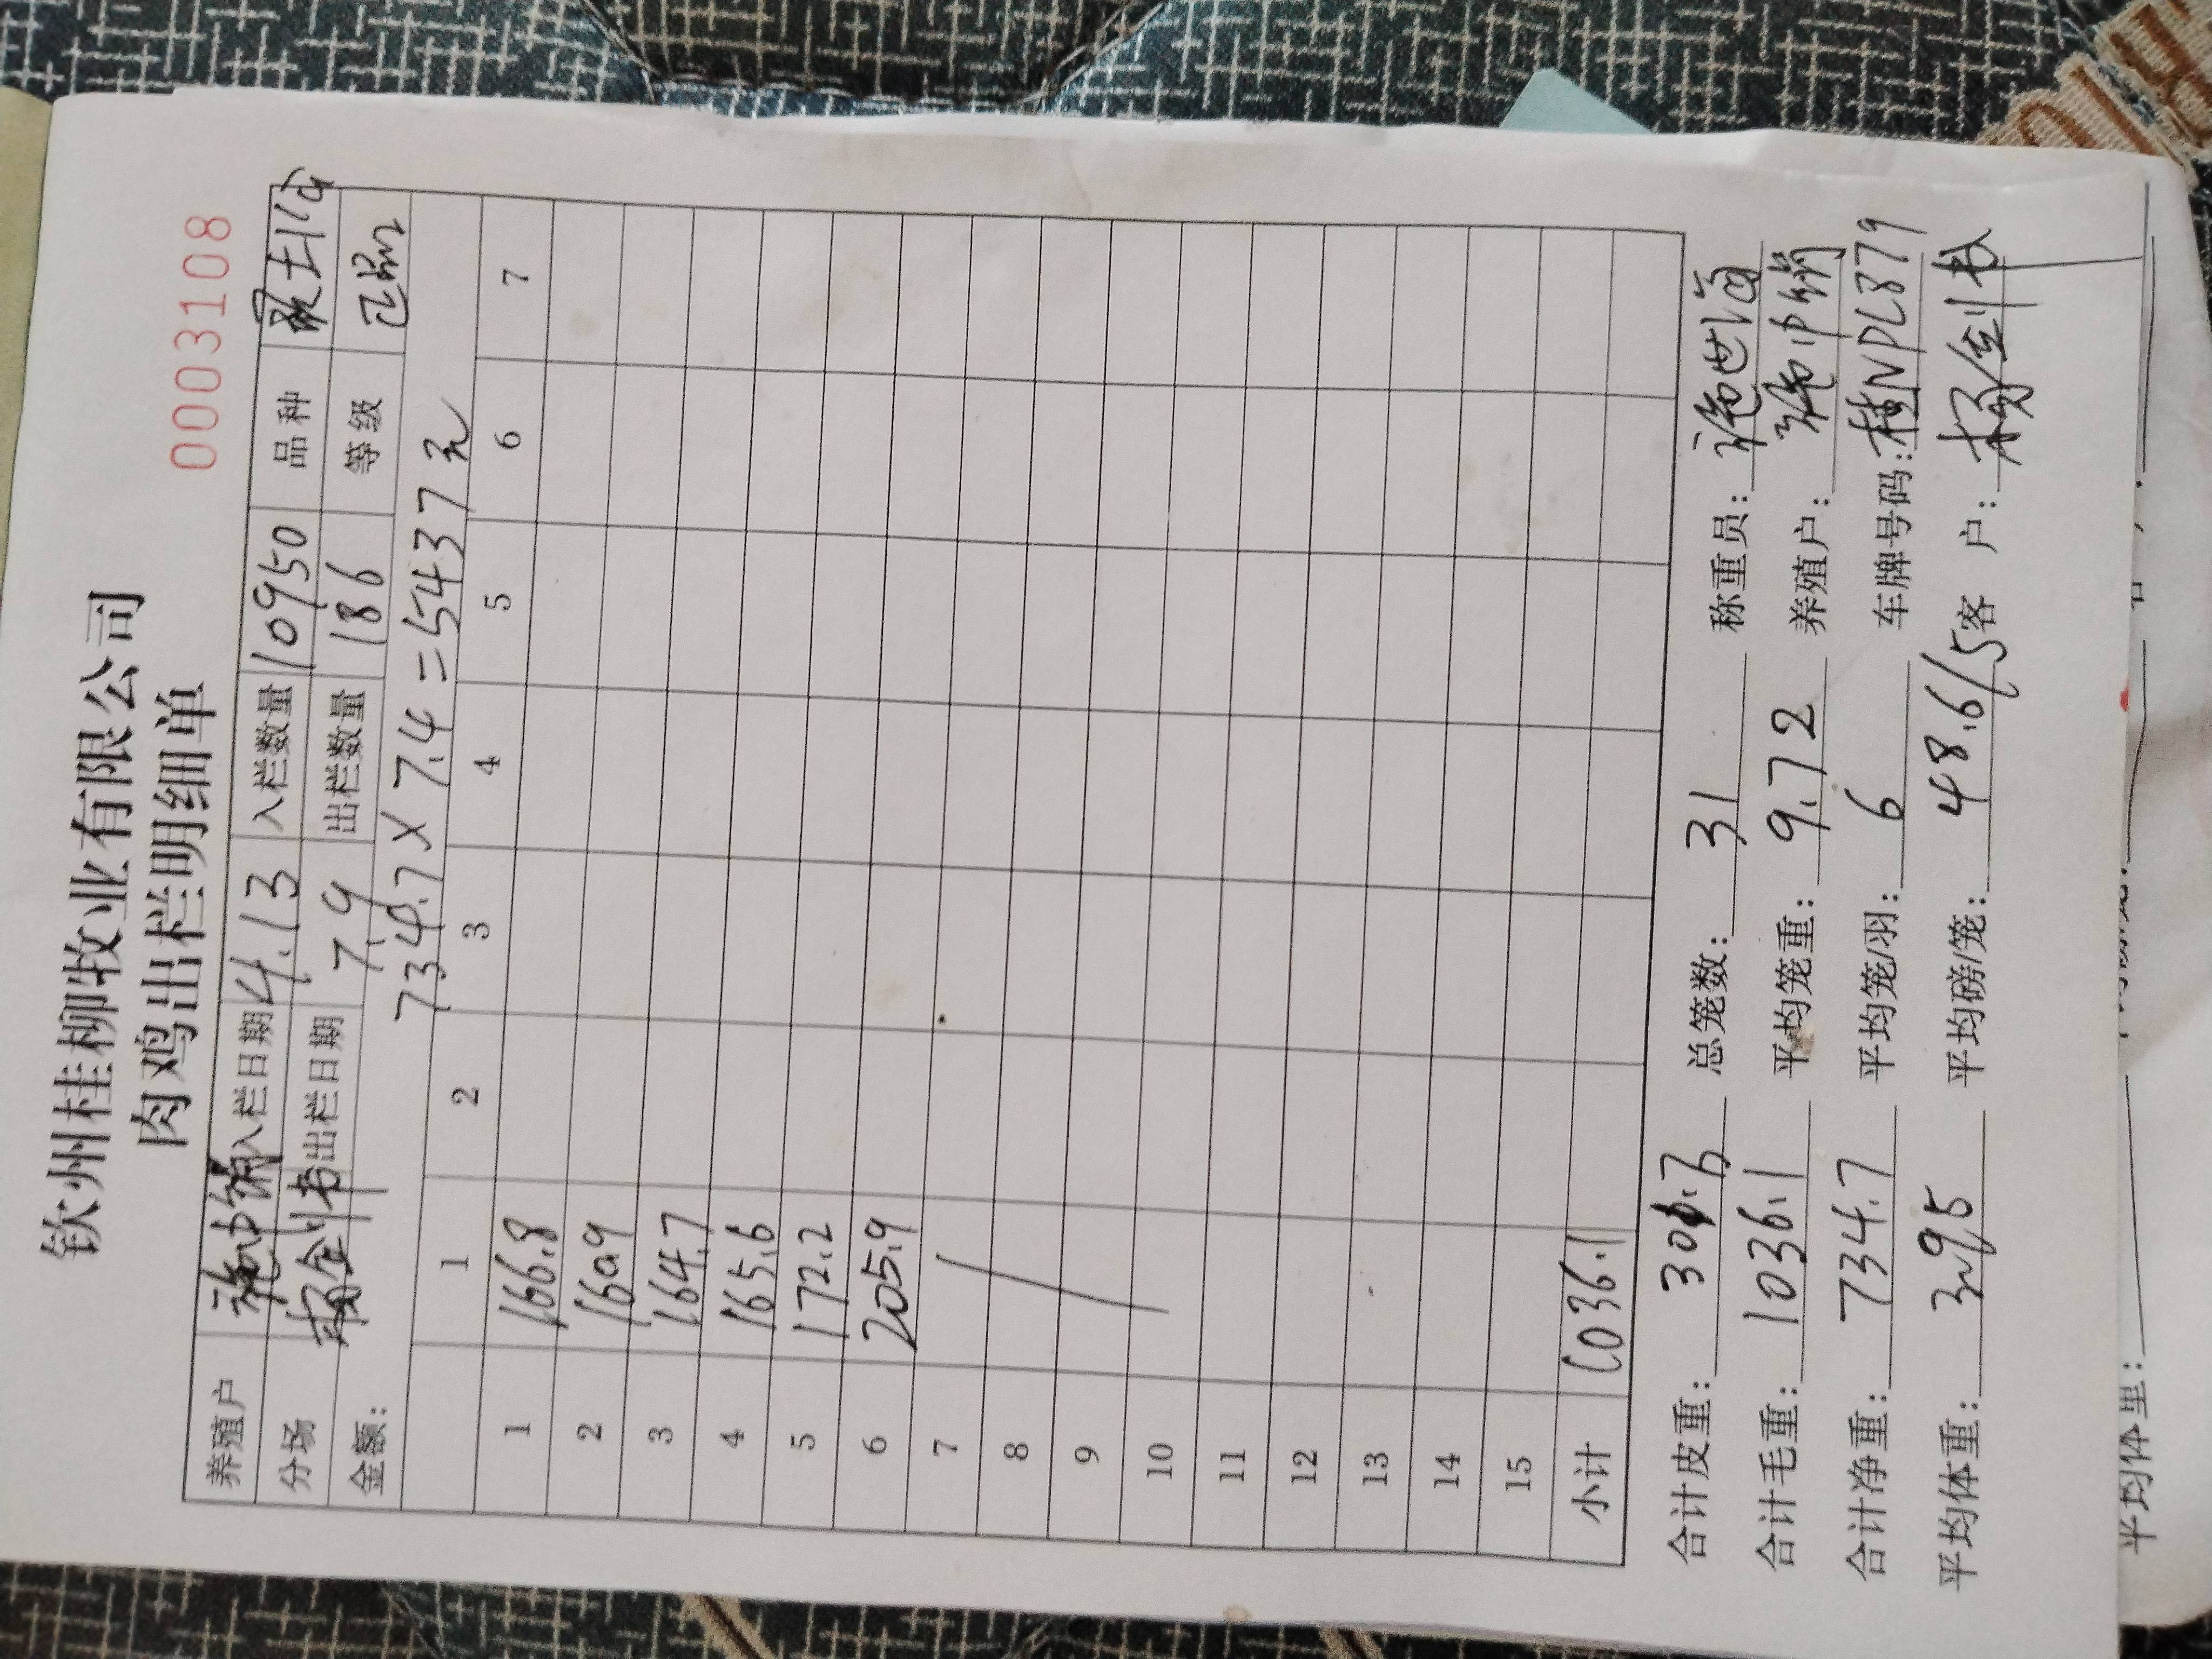 钦州桂柳牧业有限公司
肉鸡出栏明细单
0003108
养殖户 入栏日期 4.13 入栏数量 10950 品种
分场 出栏日期 7.9 出栏数量 186 等级
金额: 734.7 X 7.4 = 5437元
1 2 3 4 5 6 7
1 166.8
2 160.9
3 164.7
4 165.6
5 172.2
6 205.9
7
8
9
10
11
12
13
14
15
小计 1036.1
合计皮重: 总笼数: 31 称重员:
合计毛重: 1036.1 平均笼重: 9.72 养殖户:
合计净重: 734.7 平均笼/羽: 6 车牌号码: 桂NPL879
平均体重: 3.95 平均磅/笼: 48.6/5 客户:
平均体重: